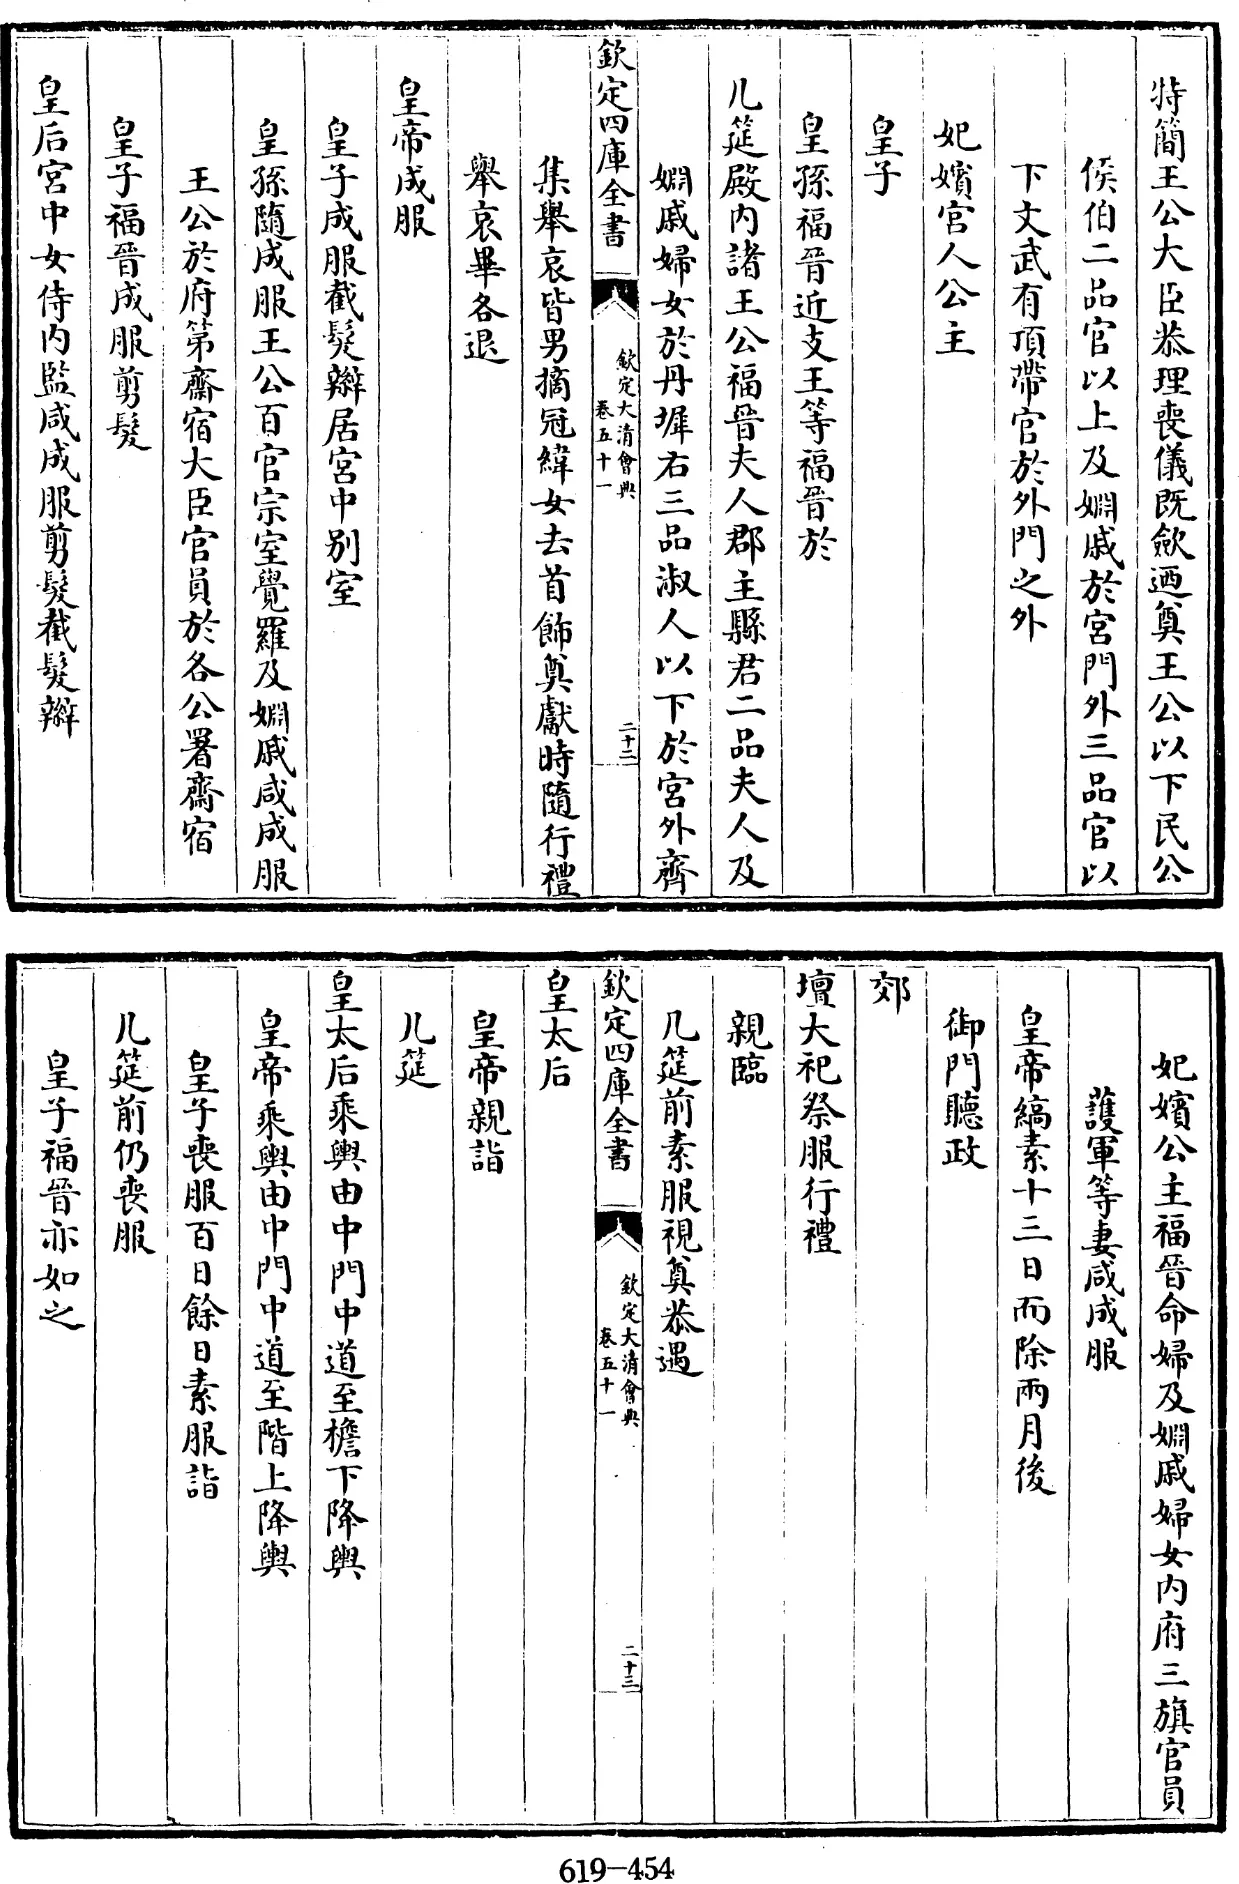 特簡王公大臣恭理喪儀既歛廼奠王公以下民公
侯伯二品官以上及嫺戚於宮門外三品官以
下文武有頂帶官於外門之外
妃嬪宮人公主
皇子
皇孫福晉近支王等福晉於
几筵殿内諸王公福晉夫人郡主縣君二品夫人及
嫺戚婦女於丹墀右三品淑人以下於宮外齊
欽定四庫全書
欽定大清會典
卷五十一
二十二
集舉哀皆男摘冠緯女去首飾奠獻時隨行禮
舉哀畢各退
皇帝成服
皇子成服截髮辮居宮中别室
皇孫隨成服王公百官宗室覺羅及嫺戚咸成服
王公於府第齋宿大臣官員於各公署齋宿
皇子福晉成服剪髮
皇后宮中女侍内監咸成服剪髮截髮辮
妃嬪公主福晉命婦及嫺戚婦女内府三旗官員
護軍等妻咸成服
皇帝縞素十三日而除兩月後
御門聽政
郊
壇大祀祭服行禮
親臨
几筵前素服視奠恭遇
欽定四庫全書
欽定大清會典
卷五十一
二十三
皇太后
皇帝親詣
几筵
皇太后乘輿由中門中道至檐下降輿
皇帝乘輿由中門中道至階上降輿
皇子喪服百日餘日素服詣
几筵前仍喪服
皇子福晉亦如之
619-454